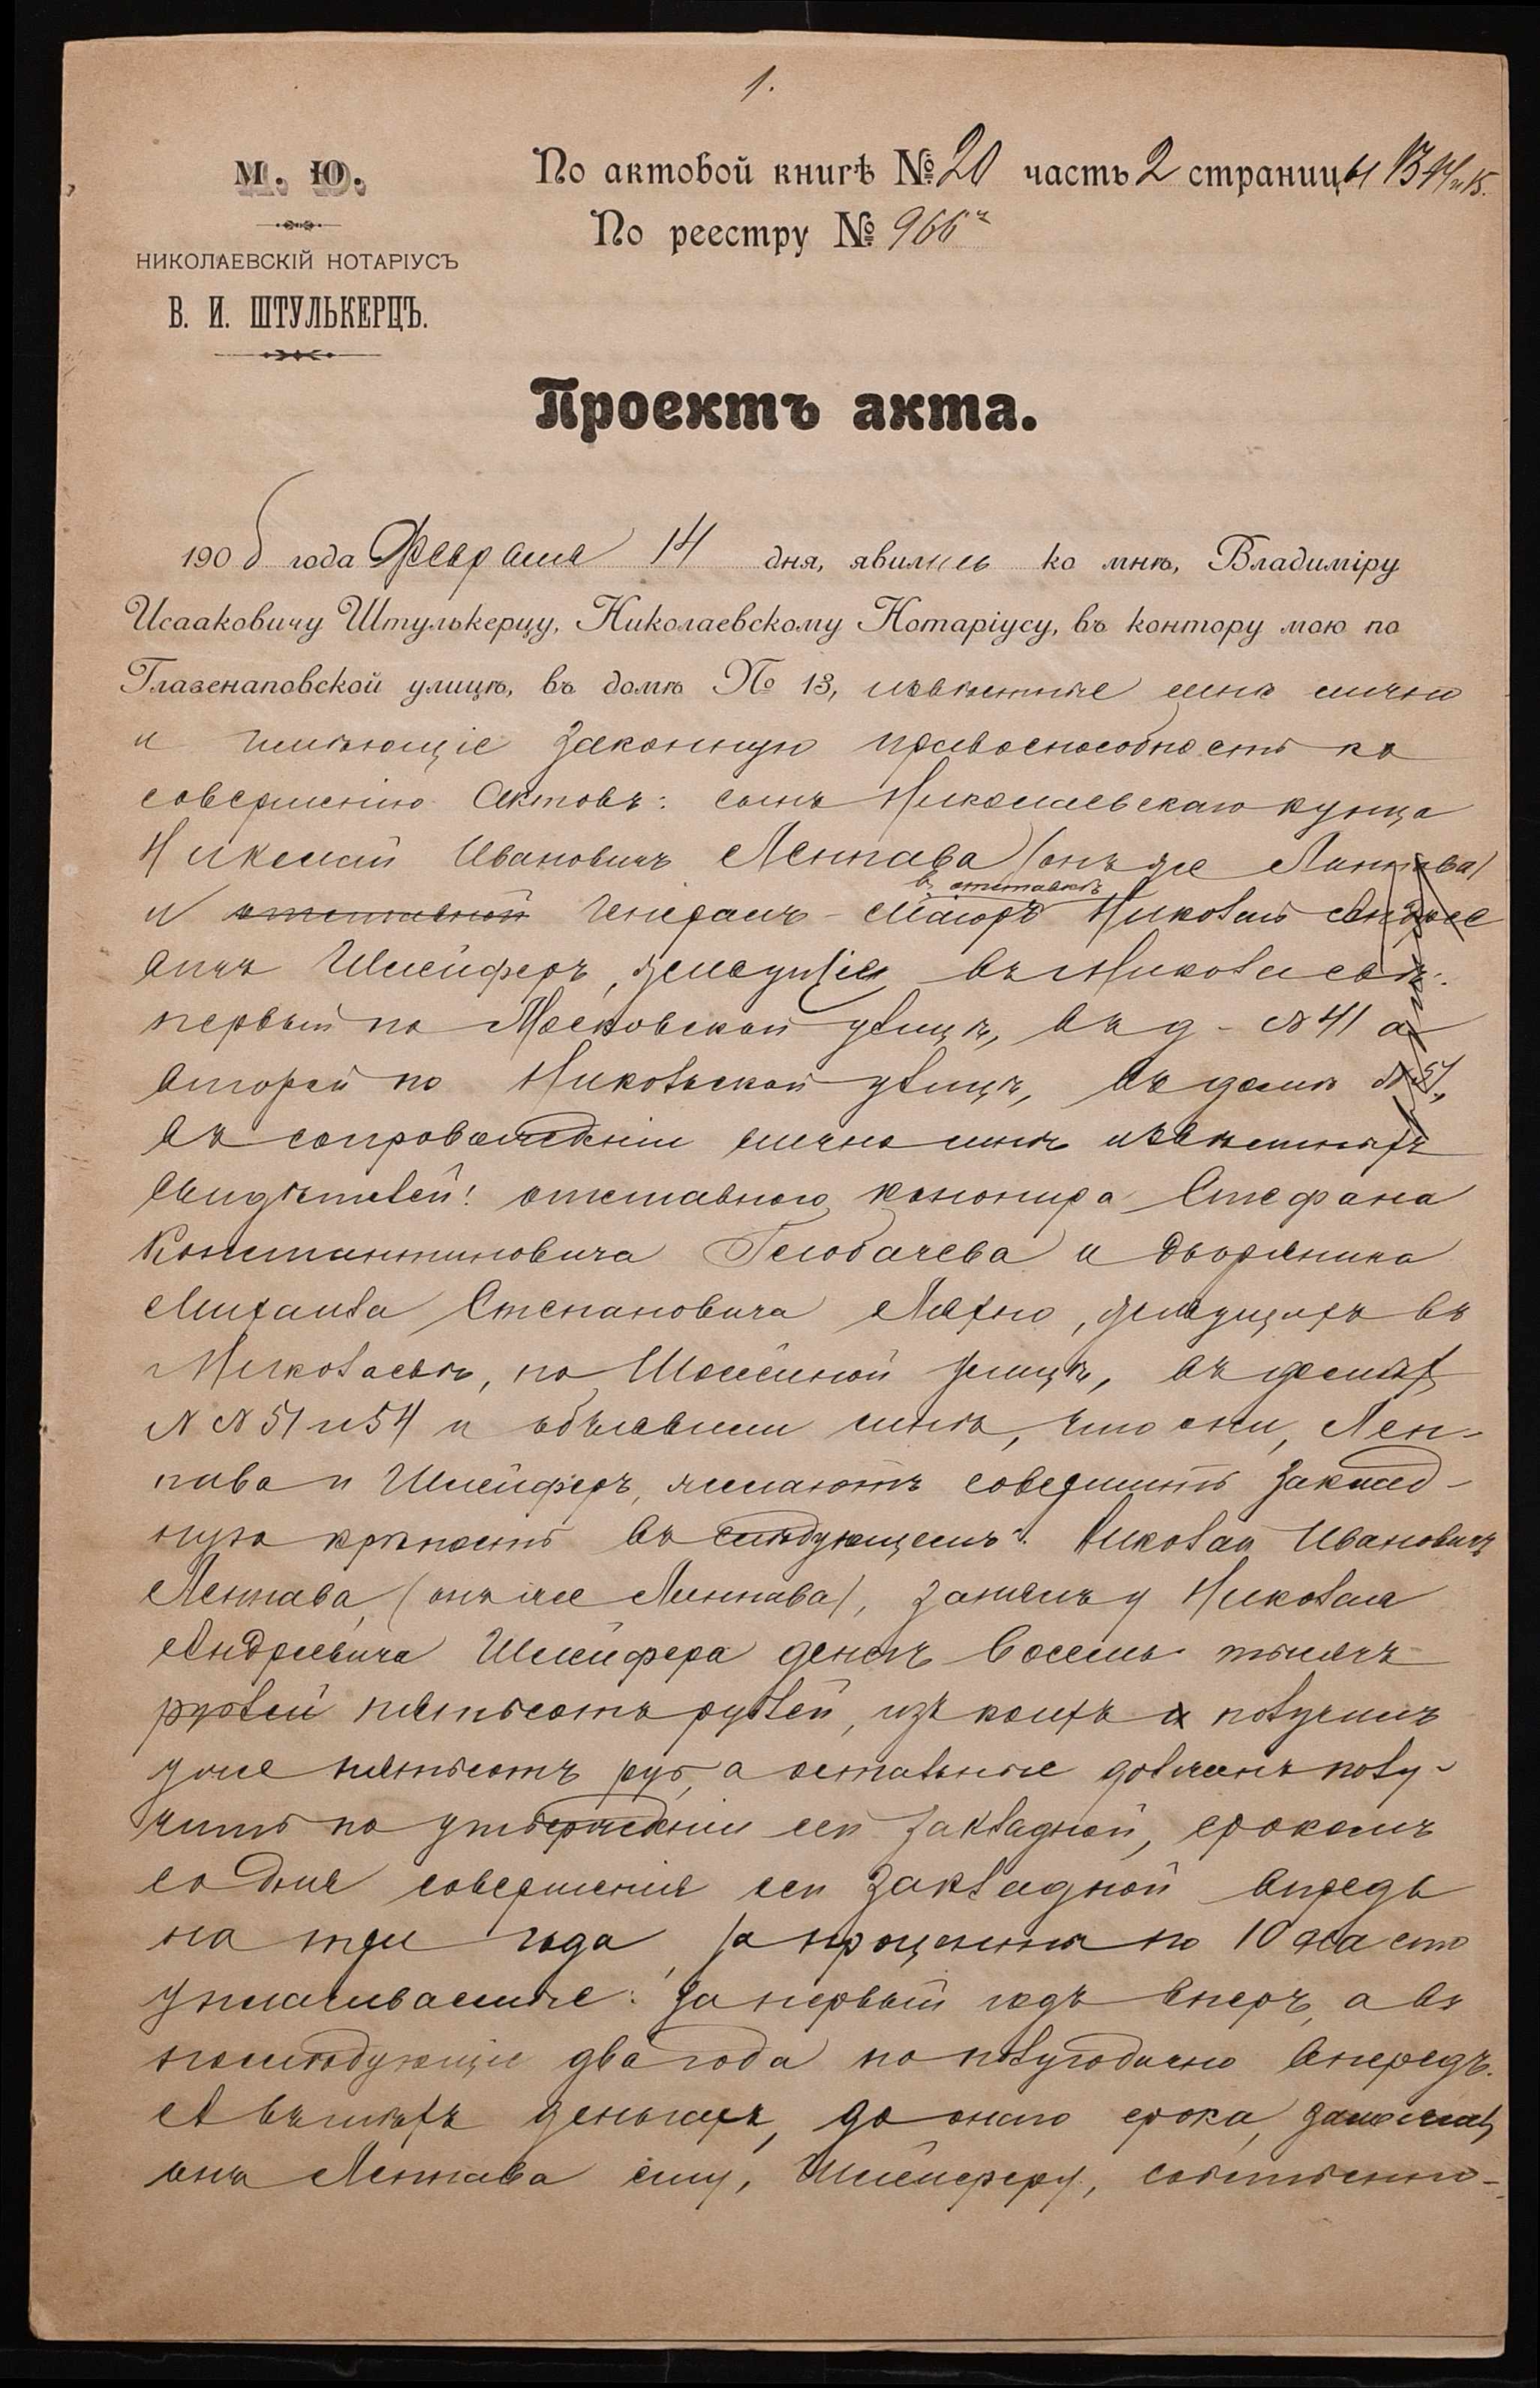 1.
М. Ю.
НИКОЛАЕВСКІЙ НОТАРІУСЪ
В. И. ШТУЛЬКЕРЦЪ.
По актовой книгѣ № 20 часть 2 страницы 13 14 и 15.
По реестру № 966
Проектъ акта.
190 года Февраля 14 дня, явились ко мнѣ, Владиміру
Исааковичу Штулькерцу, Николаевскому Нотаріусу, въ контору мою по
Глазенаповской улицѣ, въ домѣ № 13, извѣстные мнѣ лично
и имѣющіе законную правоспособность къ
совершенію актовъ: сынъ Николаевскаго купца
Николай Ивановичъ Леппава (онъ же Липпава)
и отставной Генералъ-Маіоръ въ отставкѣ Николай Андрее
вичъ Шлейферъ, живущіе въ Николаевѣ:
первый по Московской улицѣ, въ д. № 41 а
второй по Никольской улицѣ, въ домѣ № 51,
въ сопровожденіи лично мнѣ извѣстныхъ
свидѣтелей: отставного канонира Стефана
Константиновича Голобачева и дворянина
Михаила Степановича Лахно, живущихъ въ
Николаевѣ, по Шоссейной улицѣ, въ домахъ
№ № 51 и 54 и объявили мнѣ, что они, Леп-
пава и Шлейферъ, желаютъ совершить заклад-
ную крѣпость въ слѣдующемъ: Николай Ивановичъ
Леппава, (онъ же Липпава), занялъ у Николая
Андреевича Шлейфера денегъ восемь тысячъ
рублей пятьсотъ рублей, изъ коихъ получилъ
уже пятьсотъ руб, а остальные долженъ полу-
чить по утвержденіи сей закладной, срокомъ
со дня совершенія сей закладной впредь
на три года, за проценты по 10 на сто
уплачиваемые: за первый годъ впер., а въ
послѣдующіе два года по полугодично впередъ.
А въ тѣхъ деньгахъ, до онаго срока, заложилъ
онъ Леппава ему, Шлейферу, собственно-